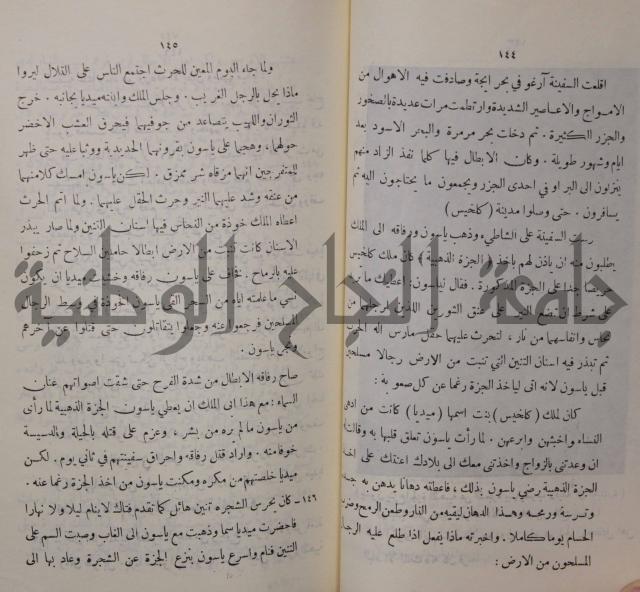 ١٤٤
اقلعت السفينة آرغو في بحر ايجة وصادفت فيه الاهوال من
الامواج والاعاصير الشديدة وارتطمت مرات عديدة بالصخور
والجزر الكثيرة . ثم دخلت بحر مرمرة والبحر الاسود بعد
ايام وشهور طويلة . وكان الابطال فيها كلما نفذ الزاد منهم
ينزلون الى البر او في احدى الجزر ويجمعون ما يحتاجون اليه ثم
يسافرون . حتى وصلوا مدينة ( كلخيس )
رست السفينة على الشاطيء وذهب ياسون ورفاقه الى الملك
يطلبون منه ان ياذن لهم باخذ ( الجزة الذهبية ) كان ملك كلخيس
حريصا جدا على الجزة المذكورة . فقال لياسون : اعطيك ما تريد
على شرط ان تضع النير على عنق الثورين اللذين ارجلهما من
نحاس وانفاسهما من نار ، لتحرث عليهما حقل مارس اله الحرب
ثم تبذر فيه اسنان التنين التي تنبت من الارض رجالا مسلحين
قبل ياسون لانه اتى لياخذ الجزة رغما عن كل صعوبة :
كان لملك ( كلخيس ) بنت اسمها ( ميديا ) كانت من ادهى
النساء واخبثهن وابرعهن . لما رأت ياسون تعلق قلبها به وقالت
ان وعدتني بالزواج واخذتني معك الى بلادك اعنتك على اخذ
الجزة الذهبية رضي ياسون بذلك ، فاعطته دهانا يدهن به جسمه
وترسه ورمحه وهذا الدهان ليقيه من النار وطعن الرمح وضربة
الحسام يوما كاملا . واخبرته ماذا يفعل اذا طلع عليه الرجال
المسلحون من الارض :
١٤٥
ولما جاء اليوم المعين للحرث اجتمع الناس على التلال ليروا
ماذا يحل بالرجل الغريب . وجلس الملك وابنته ميديا بجانبه . خرج
الثوران واللهيب يتصاعد من جوفيهما فيحرق العشب الاخضر
حولهما ، وهجما على ياسون بقرونهما الحديدية ووثبا عليه حتى ظهر
للمتفرجين انهما مزقاه شر ممزق . لكن ياسون امسك كلا منهما
من عنقه وشد عليهما النير وحرث الحقل عليهما . ولما اتم الحرث
اعطاه الملك خوذة من النحاس فيها اسنان التنين ولما صار يبذر
الاسنان كانت تنبت من الارض ابطالا حاملين السلاح ثم زحفوا
عليه بالرماح . فخاف على ياسون رفاقه وخشيت ميديا ان يكون
نسي ما علمته اياه من السحر القى ياسون الخوذة في وسط الرجال
المسلحين فرجعوا عنه وجعلوا يتقاتلون حتى قتلوا عن آخرهم
ونجى ياسون .
صاح رفاقه الابطال من شدة الفرح حتى شقت اصواتهم عنان
السماء : مع هذا ابى الملك ان يعطي ياسون الجزة الذهبية لما رأى
من ياسون ما لم يره من بشر ، وعزم على قتله بالحيلة والدسيسة
خوفا منه . واراد قتل رفاقه واحراق سفينتهم في ثاني يوم . لكن
ميديا خلصتهم من مكره ومكنت ياسون من اخذ الجزة رغما عنه .
١٤٦ - كان يحرس الشجرة تنين هائل كما تقدم فتاك لاينام ليلا ولا نهارا
فاحضرت ميديا سما وذهبت مع ياسون الى الغاب وصبت السم على
التنين فنام واسرع ياسون بنزع الجزة عن الشجرة وعاد بها الى
جامعة النجاح الوطنية